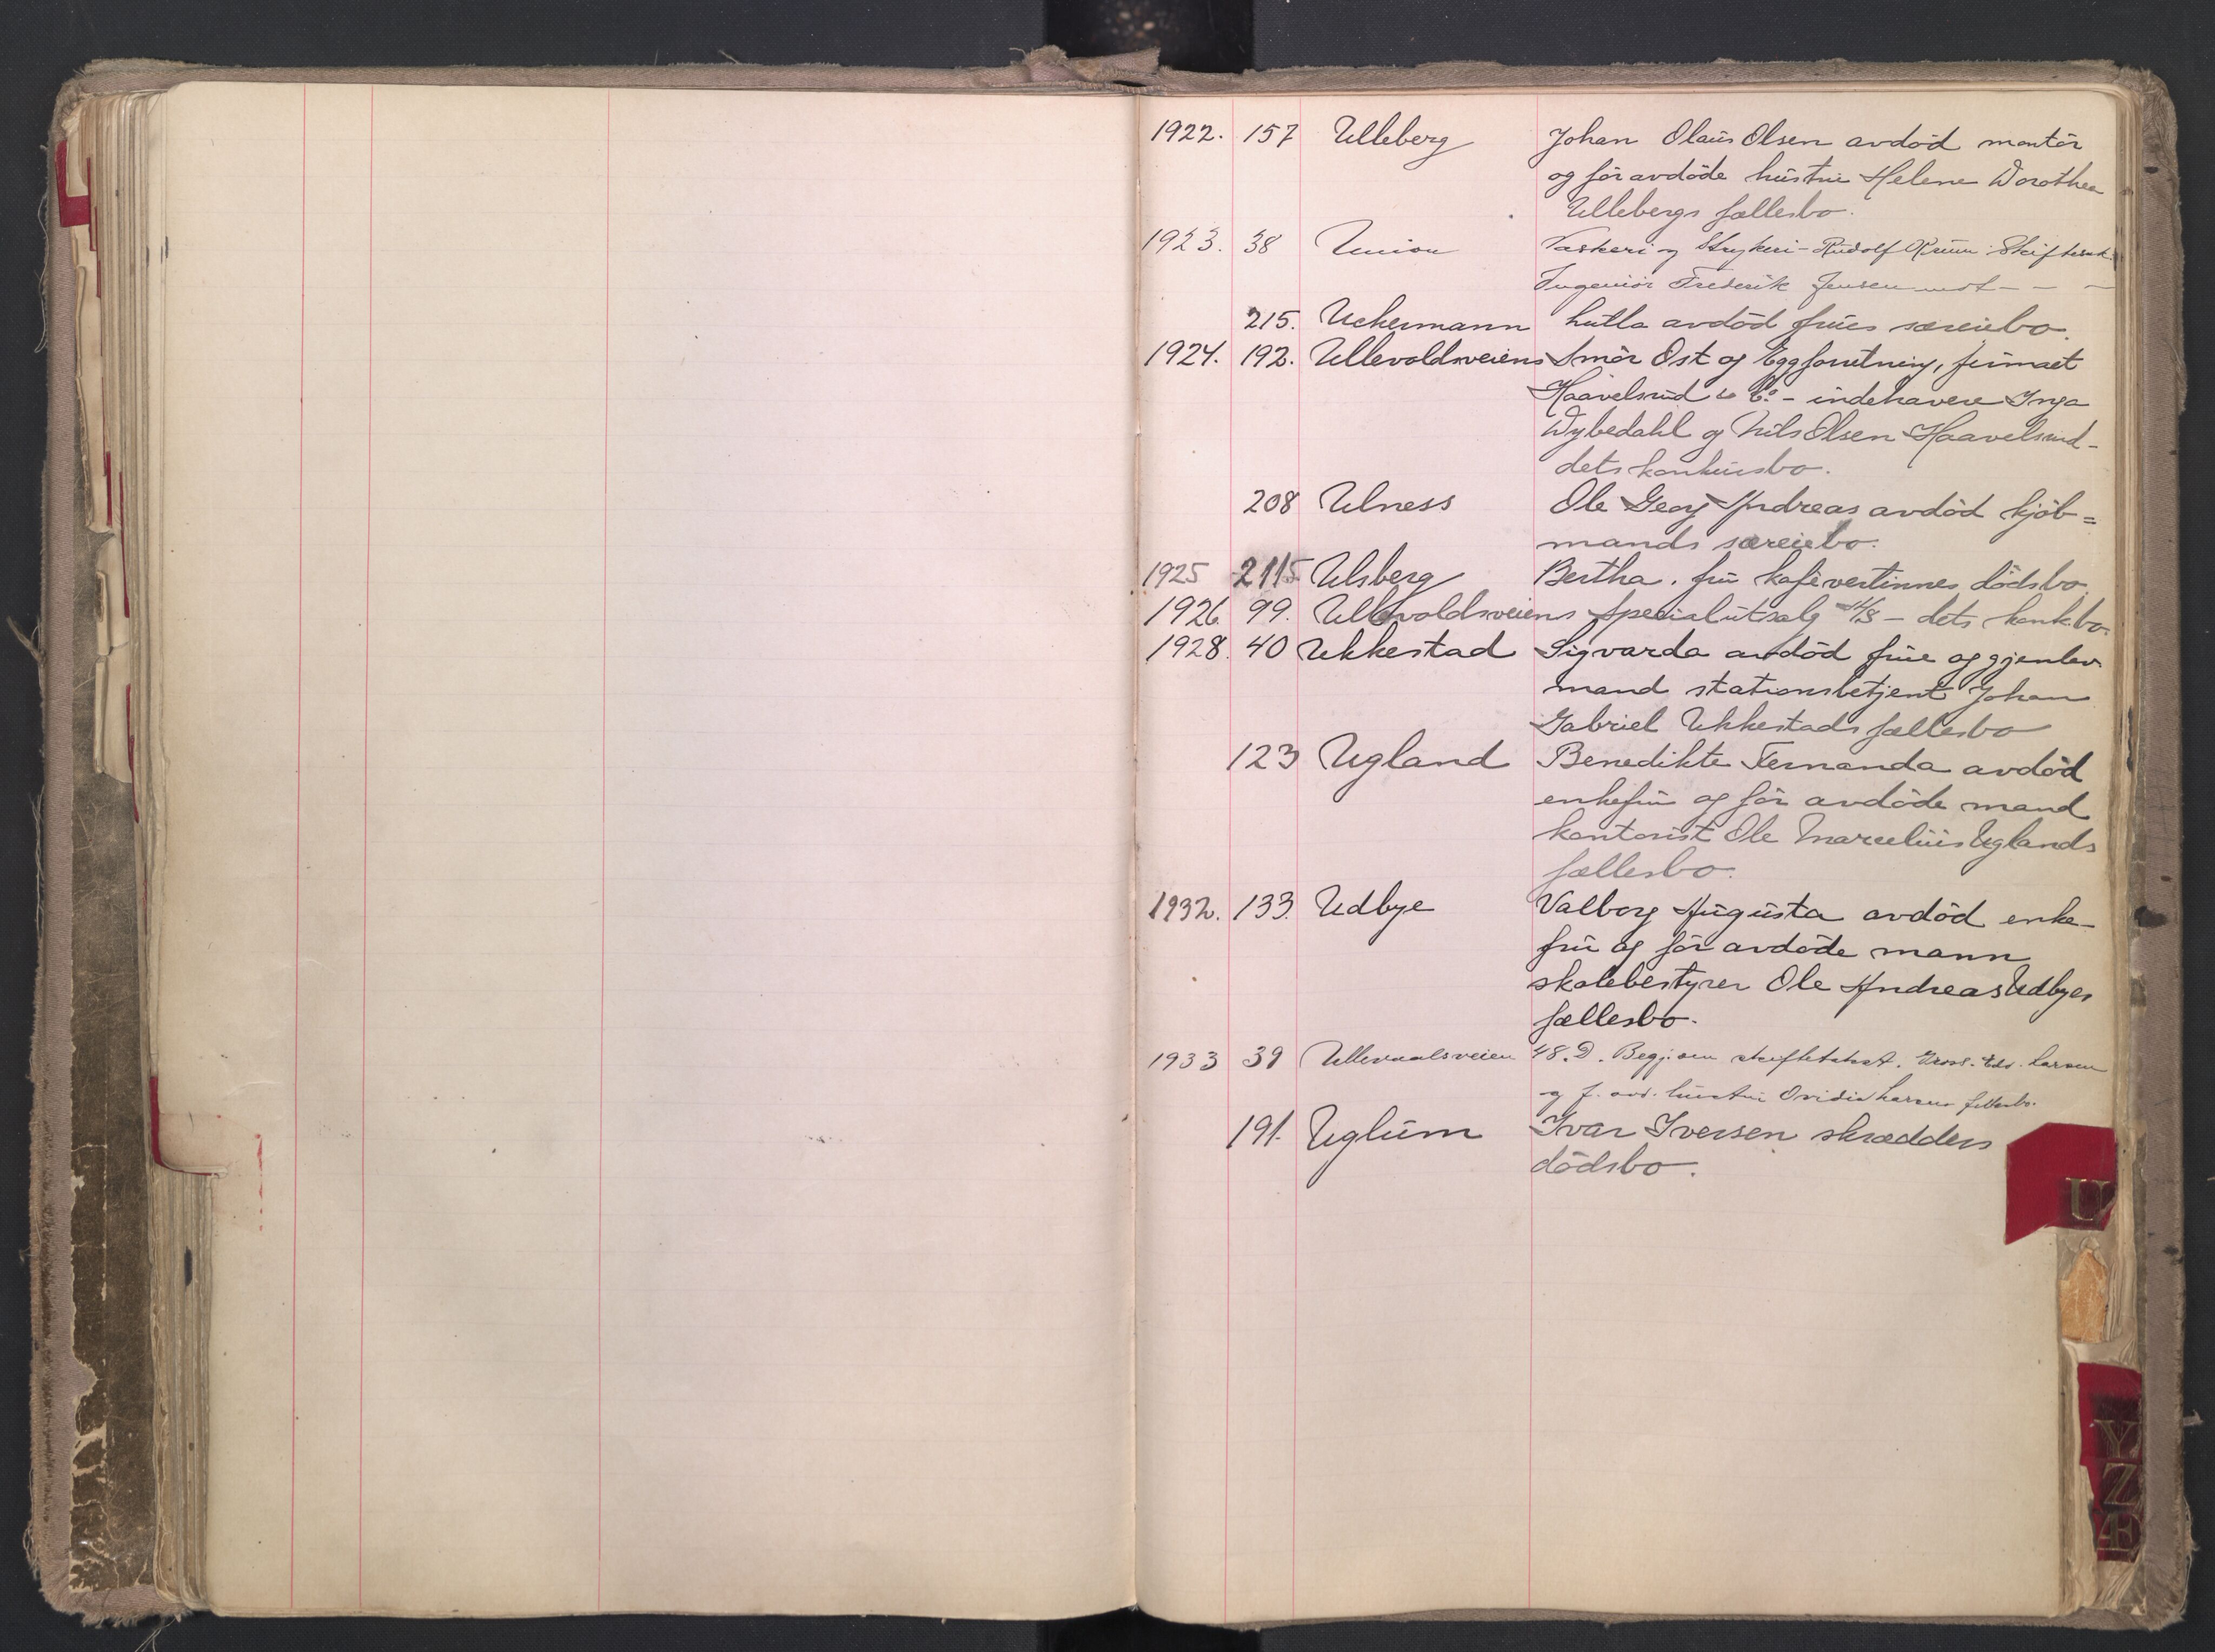 1922. 157 Ulleberg Johan Olaüs Olsen avdöd montör
og för avdöde hüstrü Helene Dorothea
Ullebergs fællesbo.
1923. 38 Union Vaskeri og Strykeri - Rüdolf
Ingeniör Frederik Jensen mot - - -
215. Uchermann hulla avdöd früs særeiebo.
1924. 192. Ullevoldsveiens Smör Ost og Eggforretning, firmaet
Haavelsrüd & Co - indehavere Inga
Dybedahl og Nils Olsen Haavelsrüd -
dets konkürsbo.
208 Ulness Ole Georg Andreas avdöd kjöb=
mands særeiebo.
1925 2115 Ulsberg Bertha. frü kafévertinnes dödsbo.
1926. 99. Ullevoldsveiens Specialütsalg A/S - dets konk.bo.
1928. 40 Ukkestad Sigvarda avdöd frue og gjenlev.
mand stationsbetjent Johan
Gabriel Ukkestads fællesbo
123 Ugland Benedikte Fernanda avdöd
enkefrü og för avdöde mand
kontorist Ole Marceliüs Uglands
fællesbo.
1932. 133. Udbye Valborg Aügüsta avdöd enke-
frü og för avdöde mann
skolebestyrer Ole Andreas Udbyes
fællesbo.
1933 39 Ullevaalsveien 48. D. Begj. om Gross. Edv. Larsen
og f. avd. hüstrü Ovidia Larsens fellesbo.
191. Uglüm Ivar Iversen skrædders
dödsbo.
U
Y
Z
Æ